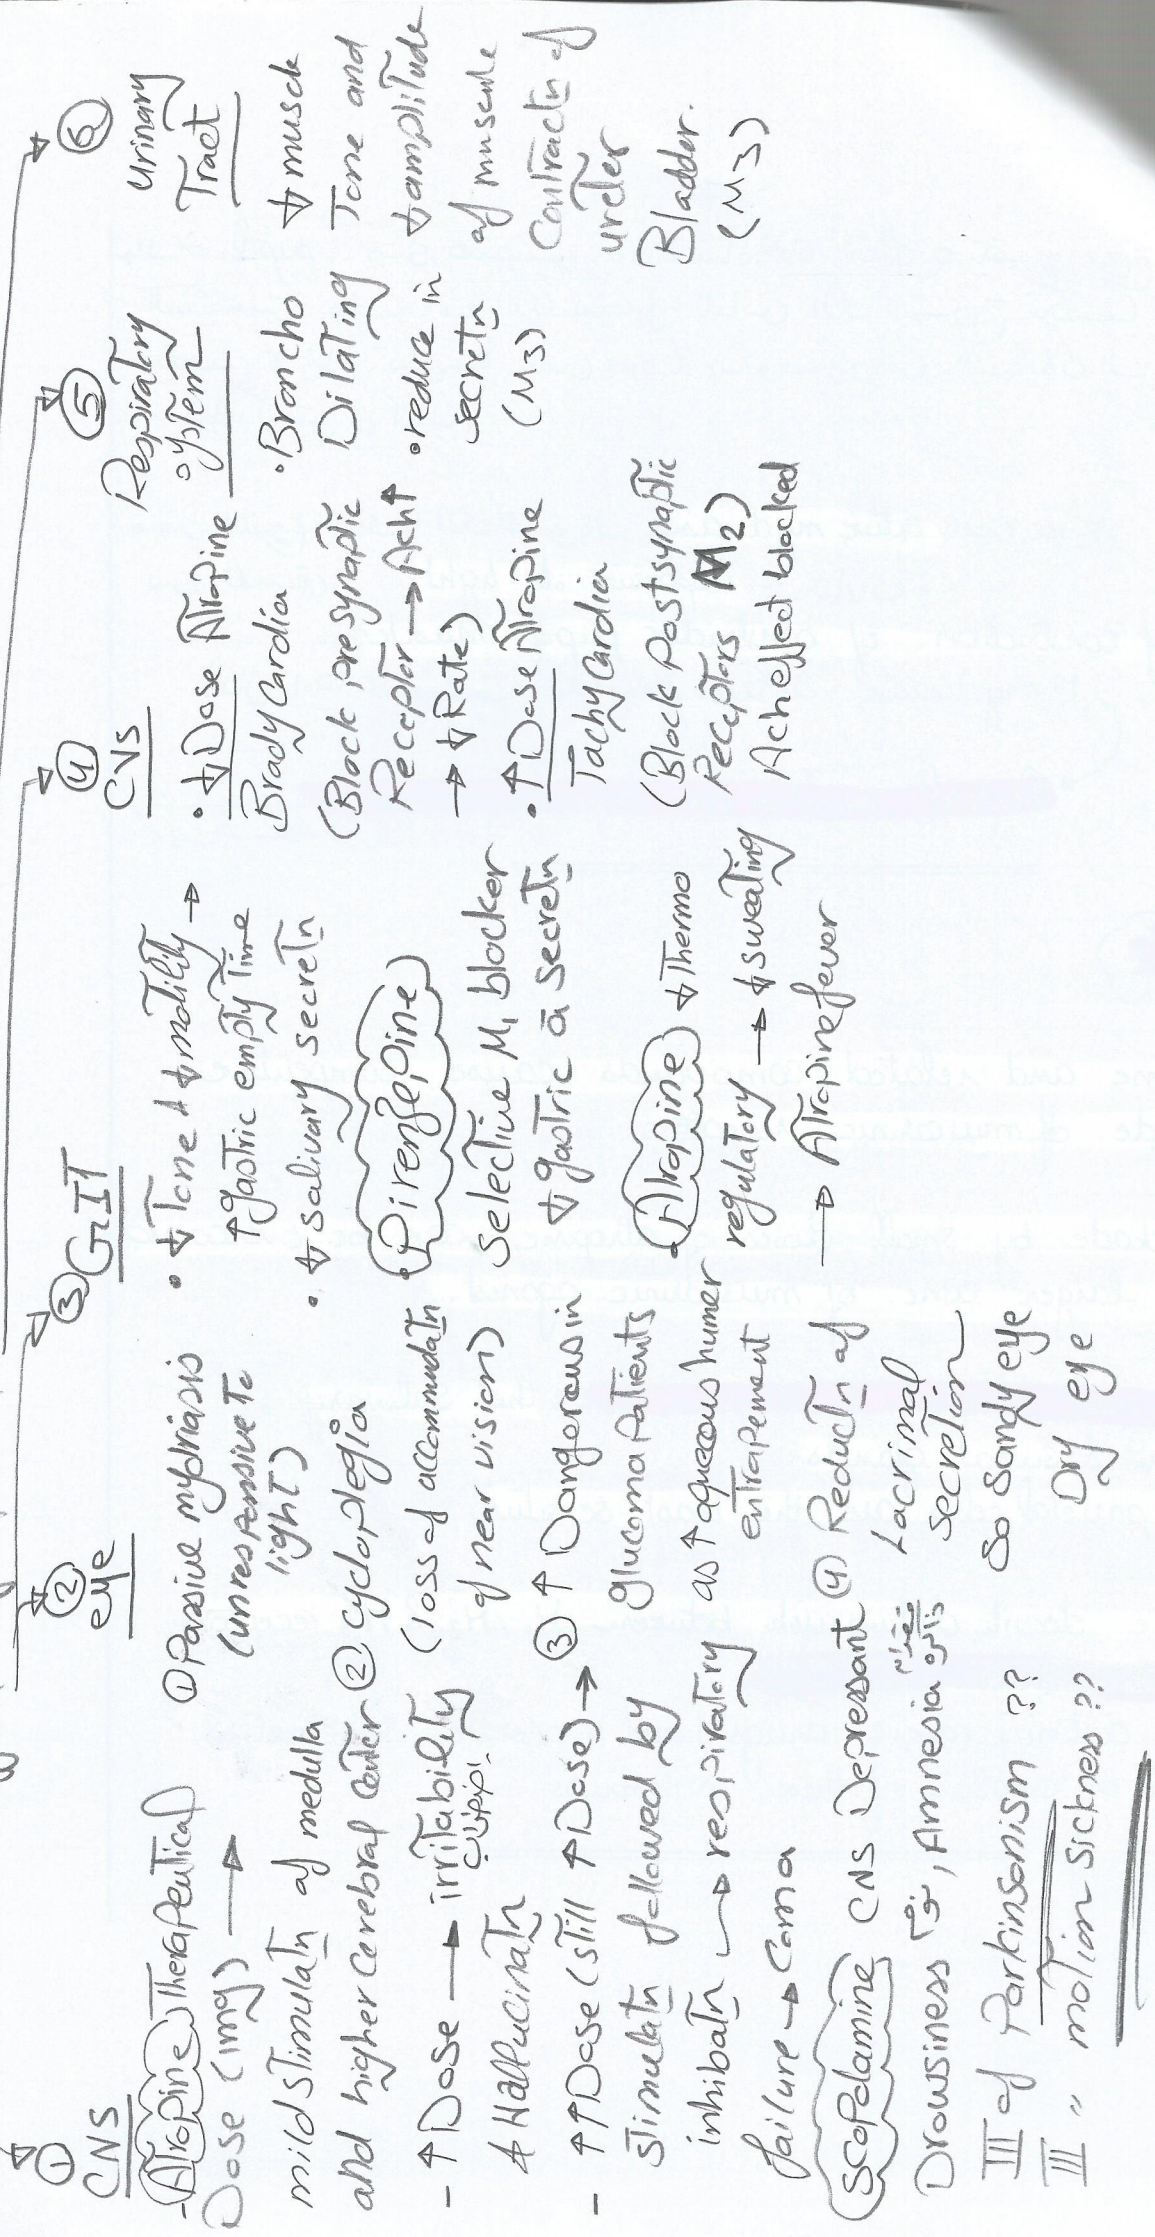 ① CNS
- Atropine Therapeutical
Dose (1mg) →
mild stimulatn of medulla
and higher cerebral center
- ↑ Dose → irritability
& Hallucinatn
- ↑↑ Dose (still ↑ Dose) →
stimulatn followed by
inhibatn → respiratory
failure → coma
Scopolamine CNS Depressant
Drowsiness, Amnesia
TTT of Parkinsonism ??
TTT " motion sickness ??
② eye
① Passive mydriasis
(unresponsive to
light)
② cycloplegia
(loss of accommodatn
of near vision)
③ ↑ Dangerous in
glucoma patients
as ↑ aqueous humer
entrapement
④ Reductn of
Lacrimal
secretion
So sandy eye
Dry eye
③ GIT
• ↓ Tone & ↓ motility →
↑ gastric empty time
• ↓ salivary secretn
• Pirenzepine
selective M1 blocker
↓ gastric a secretn
• Atropine ↓ Thermo
regulatory → ↓ sweating
→ Atropine fever
④ CVS
• ↓ Dose Atropine
Bradycardia
(Block presynaptic
Receptor → Ach ↑
→ ↓ Rate)
• ↑ Dose Atropine
Tachycardia
(Block Postsynaptic
Receptors M2)
Ach effect blocked
⑤ Respiratory
system
• Broncho
Dilating
• reduce in
secretn
(M3)
⑥ Urinary
Tract
↓ muscle
Tone and
↓ amplitude
of muscule
Contractn of
ureter
Bladder.
(M3)